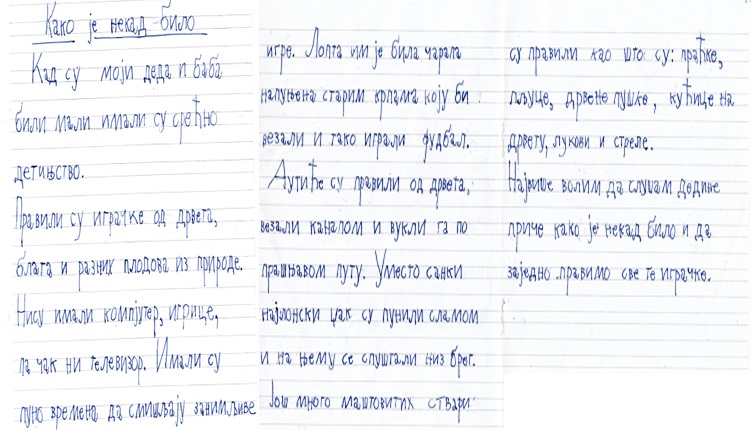 Како је некад било
Кад су моји деда и баба
били мали имали су срећно
детињство.
Правили су играчке од дрвета,
блата и разних плодова из природе.
Нису имали компјутер, игрице,
па чак ни телевизор. Имали су
пуно времена да смишљају занимљиве
игре. Лопта им је била чарапа
напуњена старим крпама коју би
везали и тако играли фудбал.
Аутиће су правили од дрвета,
везали канапом и вукли га по
прашњавом путу. Уместо санки
најлонски џак су пунили сламом
и на њему се спуштали низ брег.
Још много маштовитих ствари
су правили као што су: праћке,
пљуце, дрвене пушке, кућице на
дрвету, лукови и стреле.
Највише волим да слушам дедине
приче како је некад било и да
заједно правимо све те играчке.